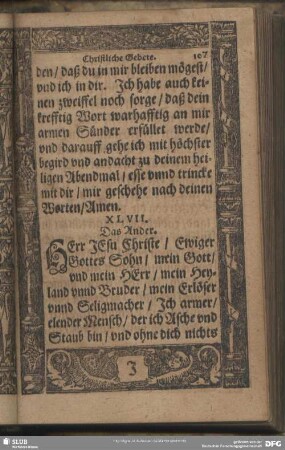 Christliche Gebete. 107
den / daß du in mir bleiben mögest /
vnd ich in dir. Ich habe auch kei-
nen zweiffel noch sorge / daß dein
krefftig Wort warhafftig an mir
armen Sünder erfüllet werde /
vnd darauff gehe ich mit höchster
begird vnd andacht zu deinem hei-
ligen Abendmal / esse vnnd trincke
mit dir / mir geschehe nach deinen
Worten / Amen.
XLVII.
Das Ander.
HErr JEsu Christe / Ewiger
Gottes Sohn / mein Gott /
vnd mein HErr / mein Hey-
land vnnd Bruder / mein Erlöser
vnnd Seligmacher / Ich armer /
elender Mensch / der ich Asche vnd
Staub bin / vnd ohne dich nichts
J
SLUB
DFG